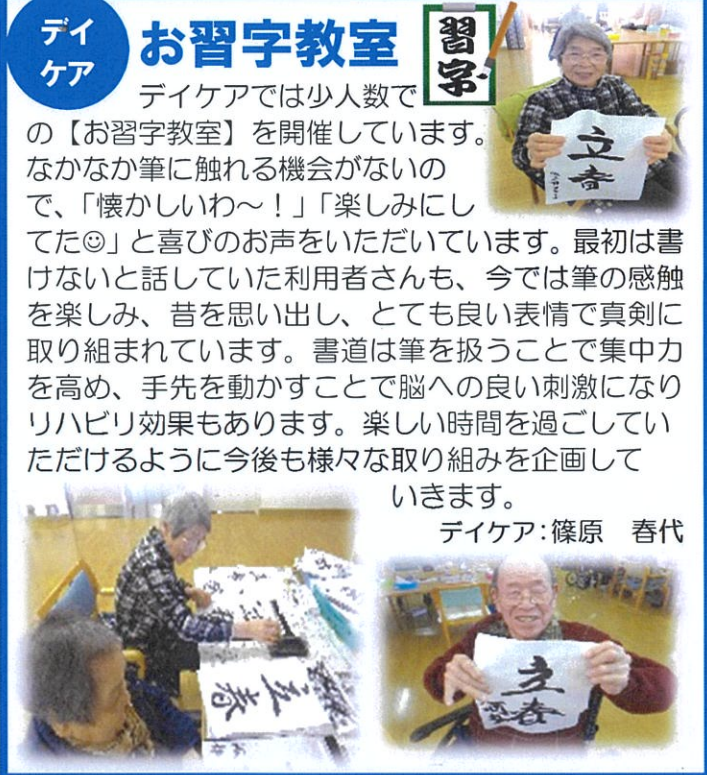 デイ
ケア
お習字教室
習字
デイケアでは少人数で
の【お習字教室】を開催しています。
なかなか筆に触れる機会がないの
で、「懐かしいわ～!」「楽しみにし
てた☺」と喜びのお声をいただいています。最初は書
けないと話していた利用者さんも、今では筆の感触
を楽しみ、昔を思い出し、とても良い表情で真剣に
取り組まれています。書道は筆を扱うことで集中力
を高め、手先を動かすことで脳への良い刺激になり
リハビリ効果もあります。楽しい時間を過ごしてい
ただけるように今後も様々な取り組みを企画して
いきます。
デイケア:篠原　春代
立春
立春
立春